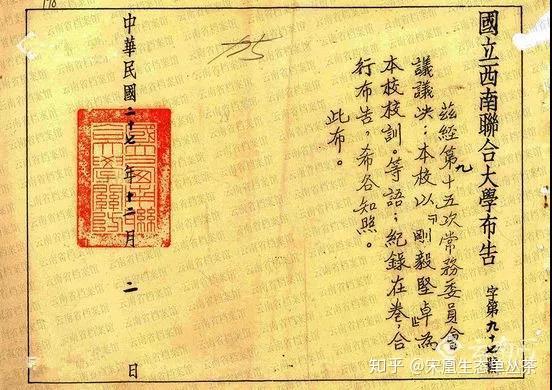 國立西南聯合大學布告 字第九十七號
茲經第九十五次常務委員會
議議決：本校以『剛毅堅卓』為
本校校訓。等語；紀錄在卷，合
行布告，希各知照。
此布。
中華民國二十七年十二月二日
國立西南聯
合大學關防
云南省档案馆
知乎 @宋凰生态单丛茶